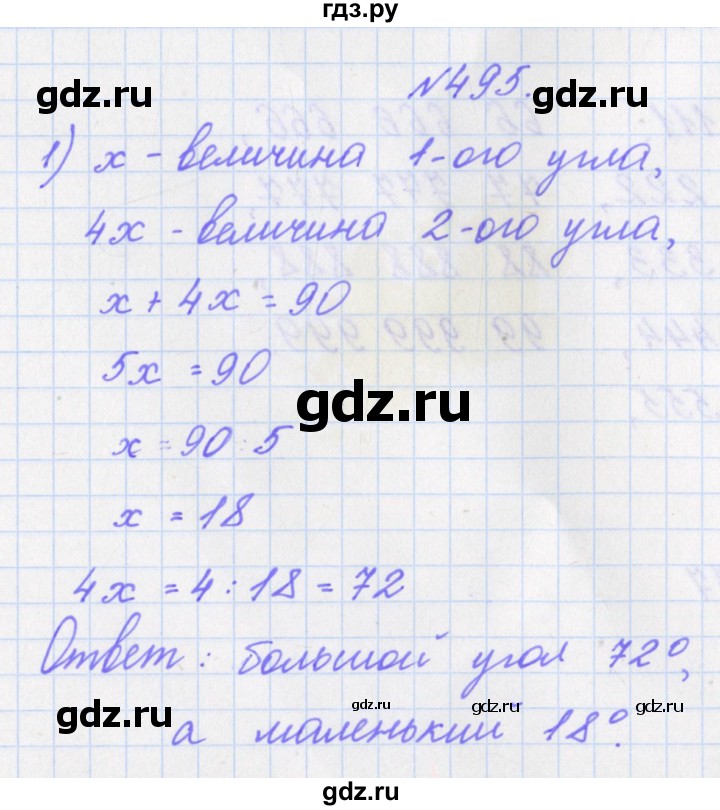 гдз.ру
№495.
gdz.ru gdz.ru
1) x - величина 1-ого угла,
4x - величина 2-ого угла,
x + 4x = 90
5x = 90
gdz.ru
x = 90 : 5
x = 18
4x = 4 : 18 = 72
Ответ: большой угол 72°,
gdz.ru gdz.ru gdz.ru
а маленький 18°.
gdz.ru